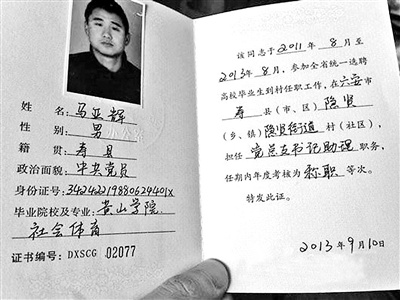 姓 名:马亚辉
性 别:男
籍 贯:寿县
政治面貌:中共党员
身份证号:34242219880624401X
毕业院校及专业:黄山学院
社会体育
证书编号:DXSCG 02077
该同志于2011年8月至
2013年8月,参加全省统一选聘
高校毕业生到村任职工作,在六安市
寿县(市、区)隐贤
(乡、镇)隐贤街道村(社区),
担任党总支书记助理职务,
任期内年度考核为称职等次。
特发此证。
2013年9月10日